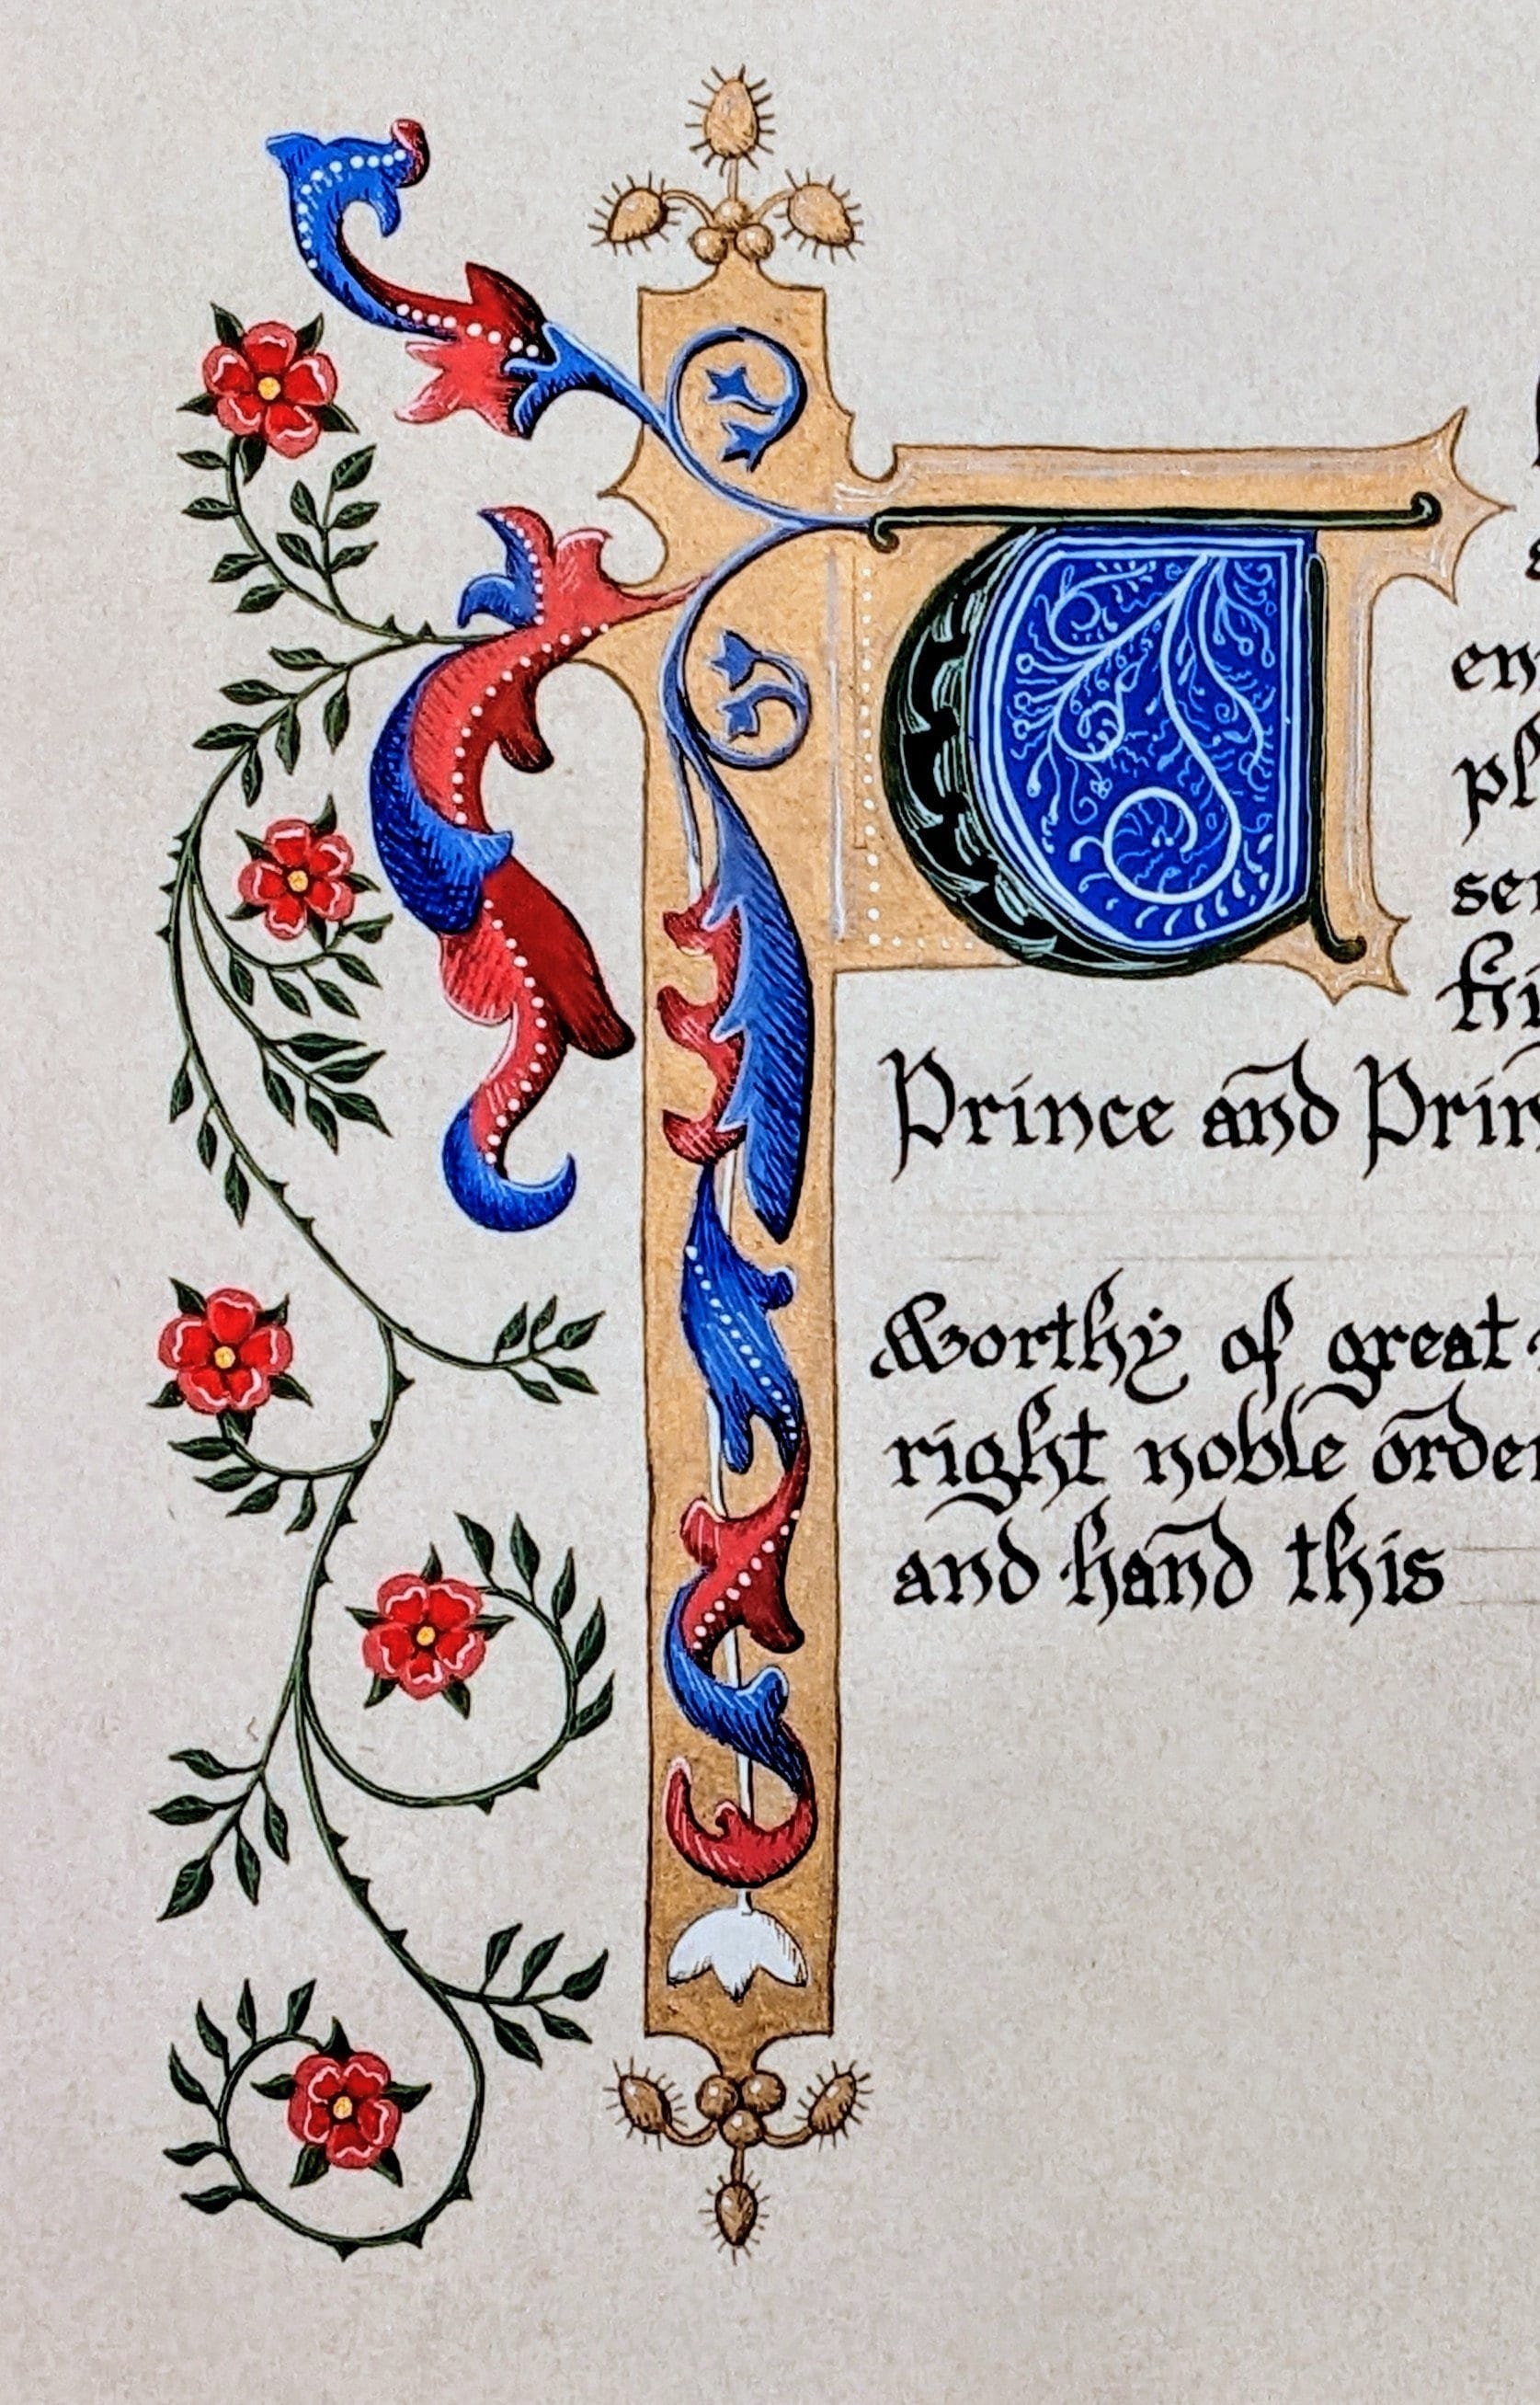 T
en
pl
sen
hi
Prince and Prin
Worthy of great
right noble order
and hand this